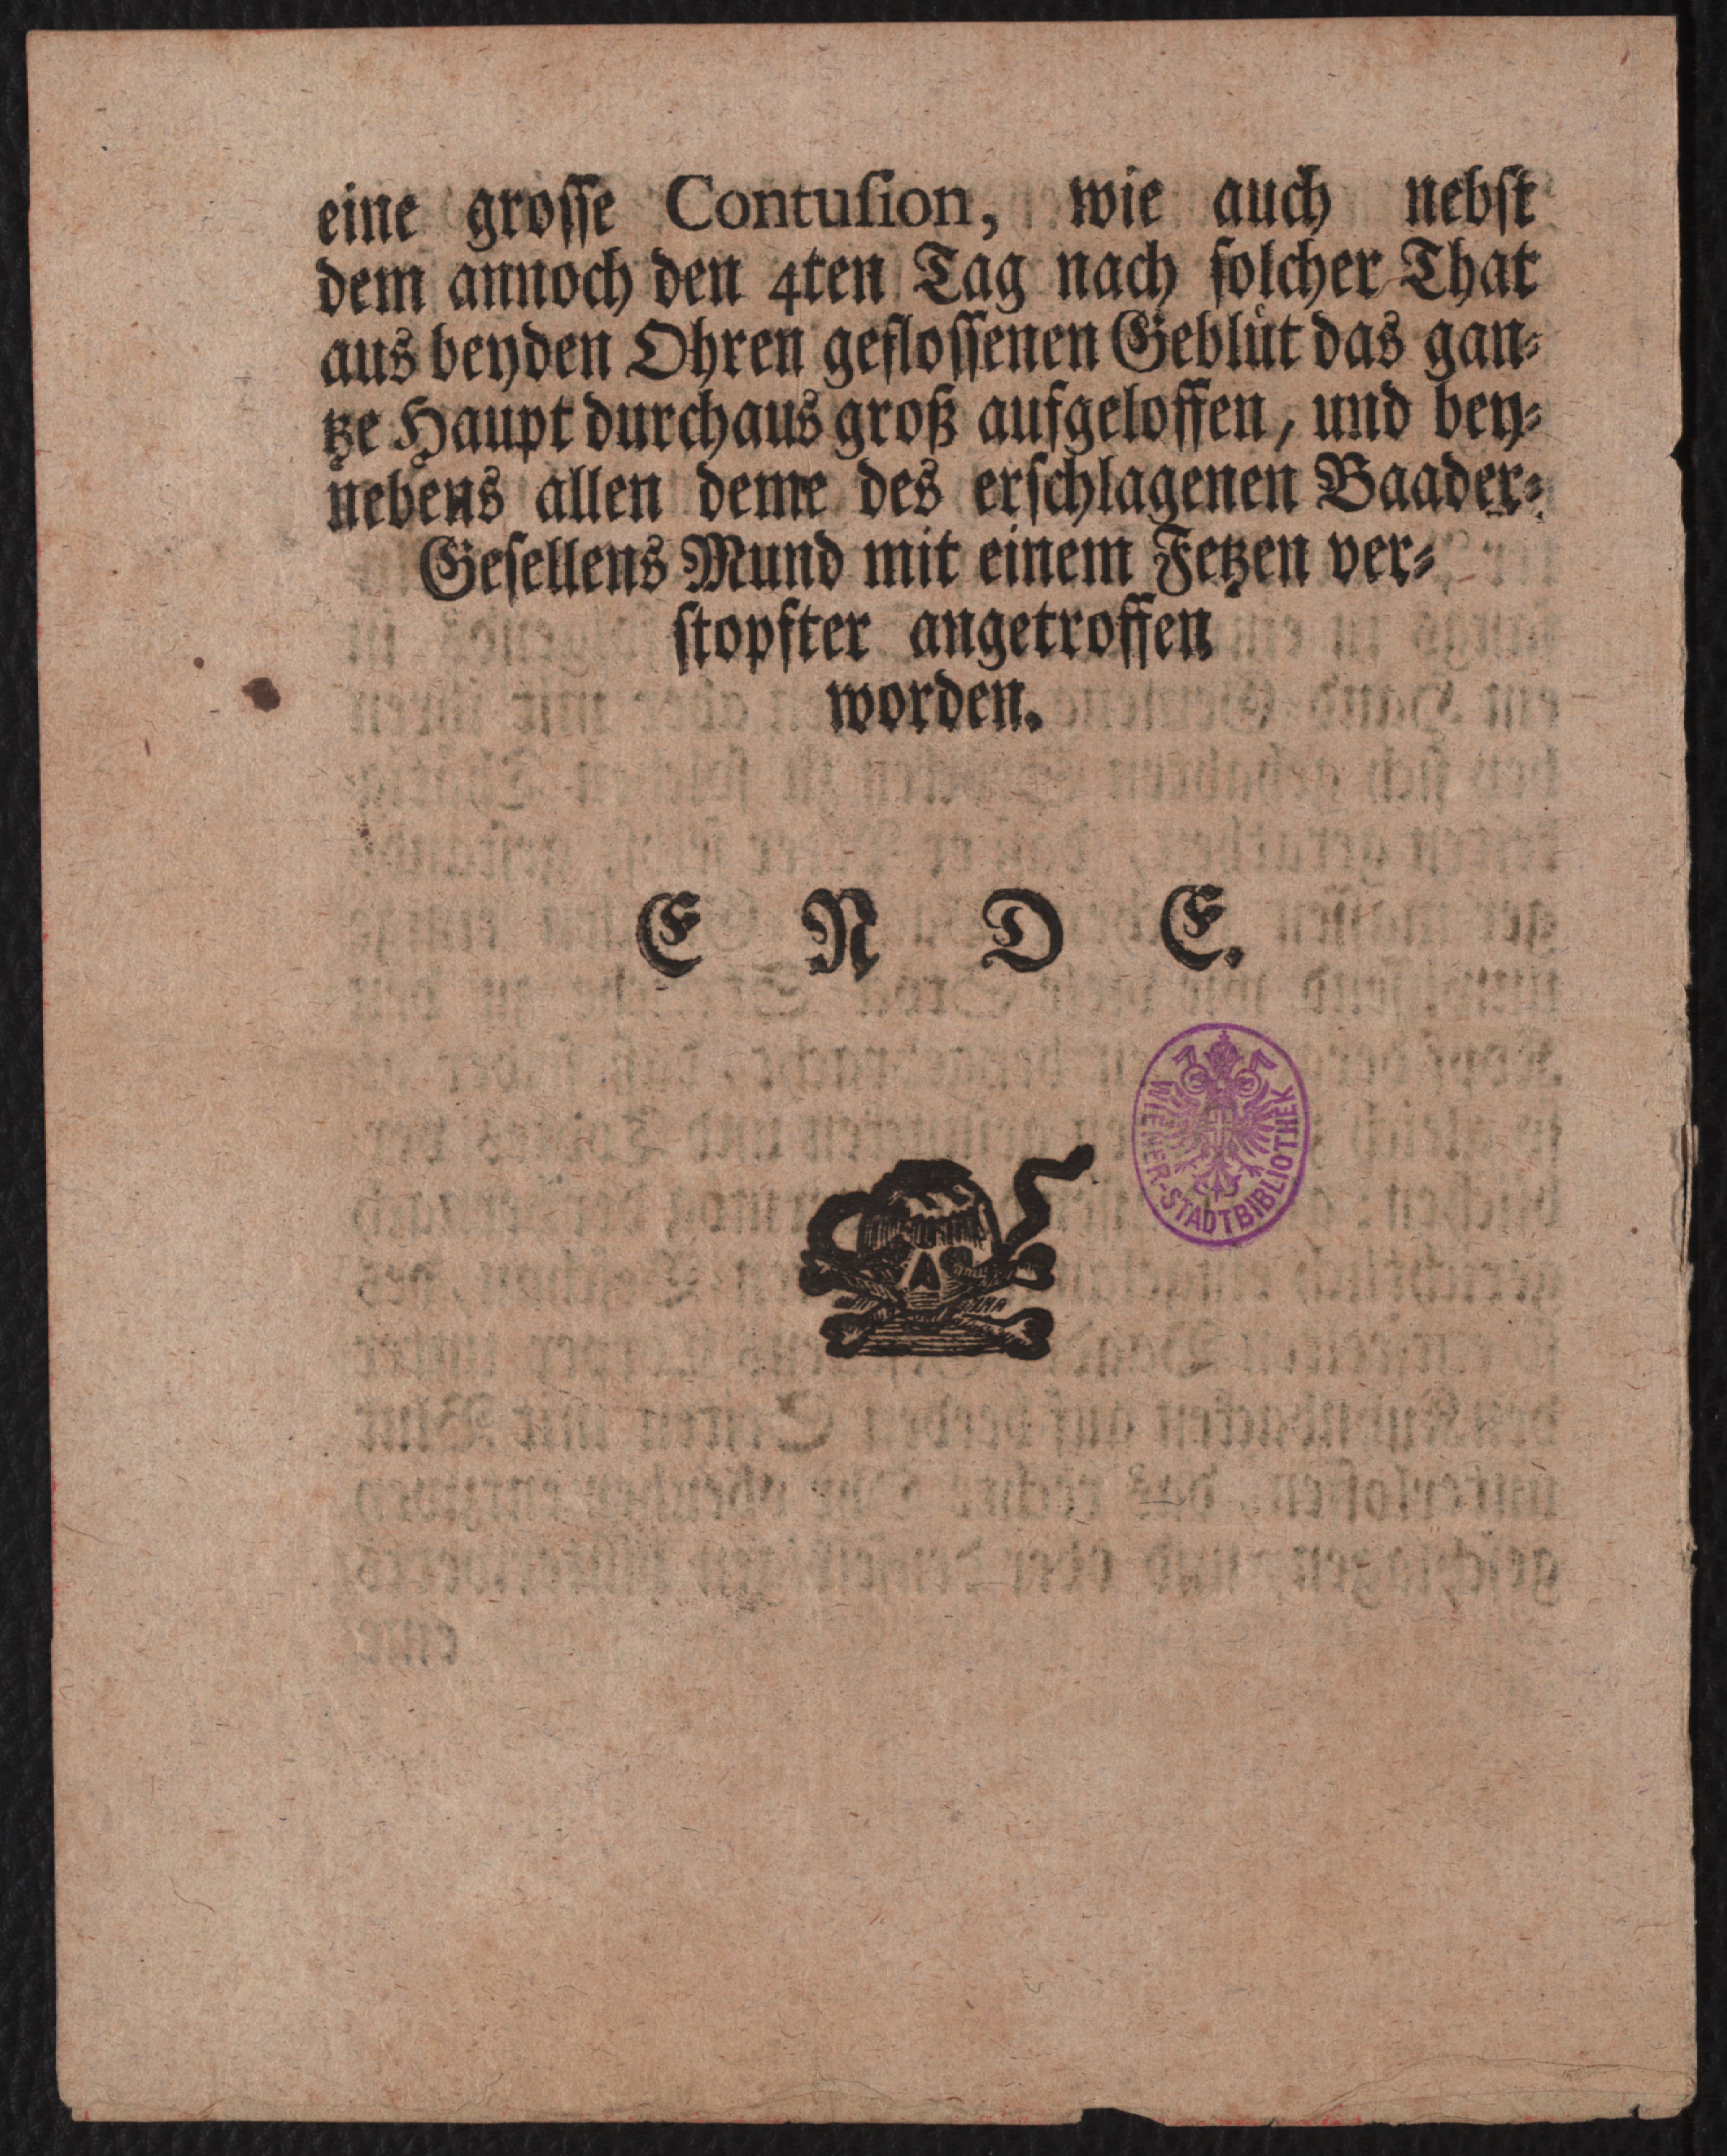 eine grosse Contuſion, wie auch nebſt
dem annoch den 4ten Tag nach ſolcher That
aus beyden Ohren gefloſſenen Geblüt das gan⸗
tze Haupt durchaus groß aufgeloffen, und bey⸗
nebens allen deme des erſchlagenen Baader⸗
Geſellens Mund mit einem Fetzen ver⸗
ſtopfter angetroffen
worden.
E N D E.
WIENER-STADTBIBLIOTHEK